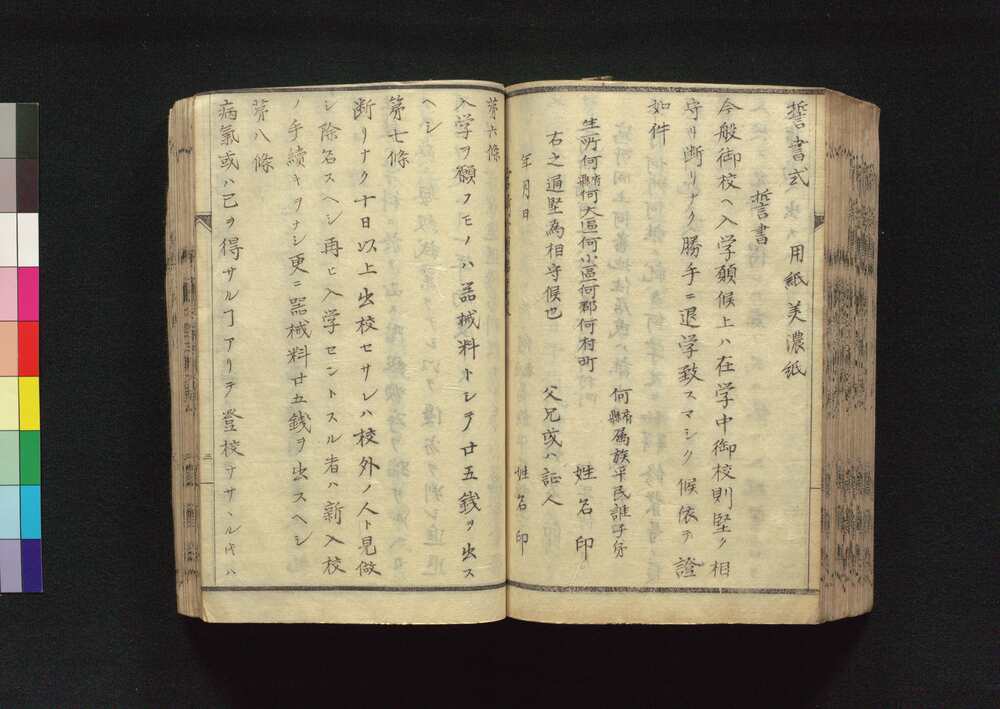 誓書式 用紙美濃紙
誓書
今般御校ヘ入学願候上ハ在学中御校則堅ク相
守リ断リナク勝手ニ退学致スマシク候依テ證
如件
何府縣属族平民誰子弟
生所何府縣何大區何小區何郡何村町
姓名印
右之通堅為相守候也
父兄或ハ証人
年月日 姓名印
第六條
入学ヲ願フモノハ器械料トシテ廿五銭ヲ出ス
ヘシ
第七條
断リナク十日以上出校セサレハ校外ノ人ト見做
シ除名スヘシ再ヒ入学セントスル者ハ新入校
ノ手續キヲナシ更ニ器械料廿五銭ヲ出スヘシ
第八條
病氣或ハ已ヲ得サルヿアリテ登校セサルトキハ